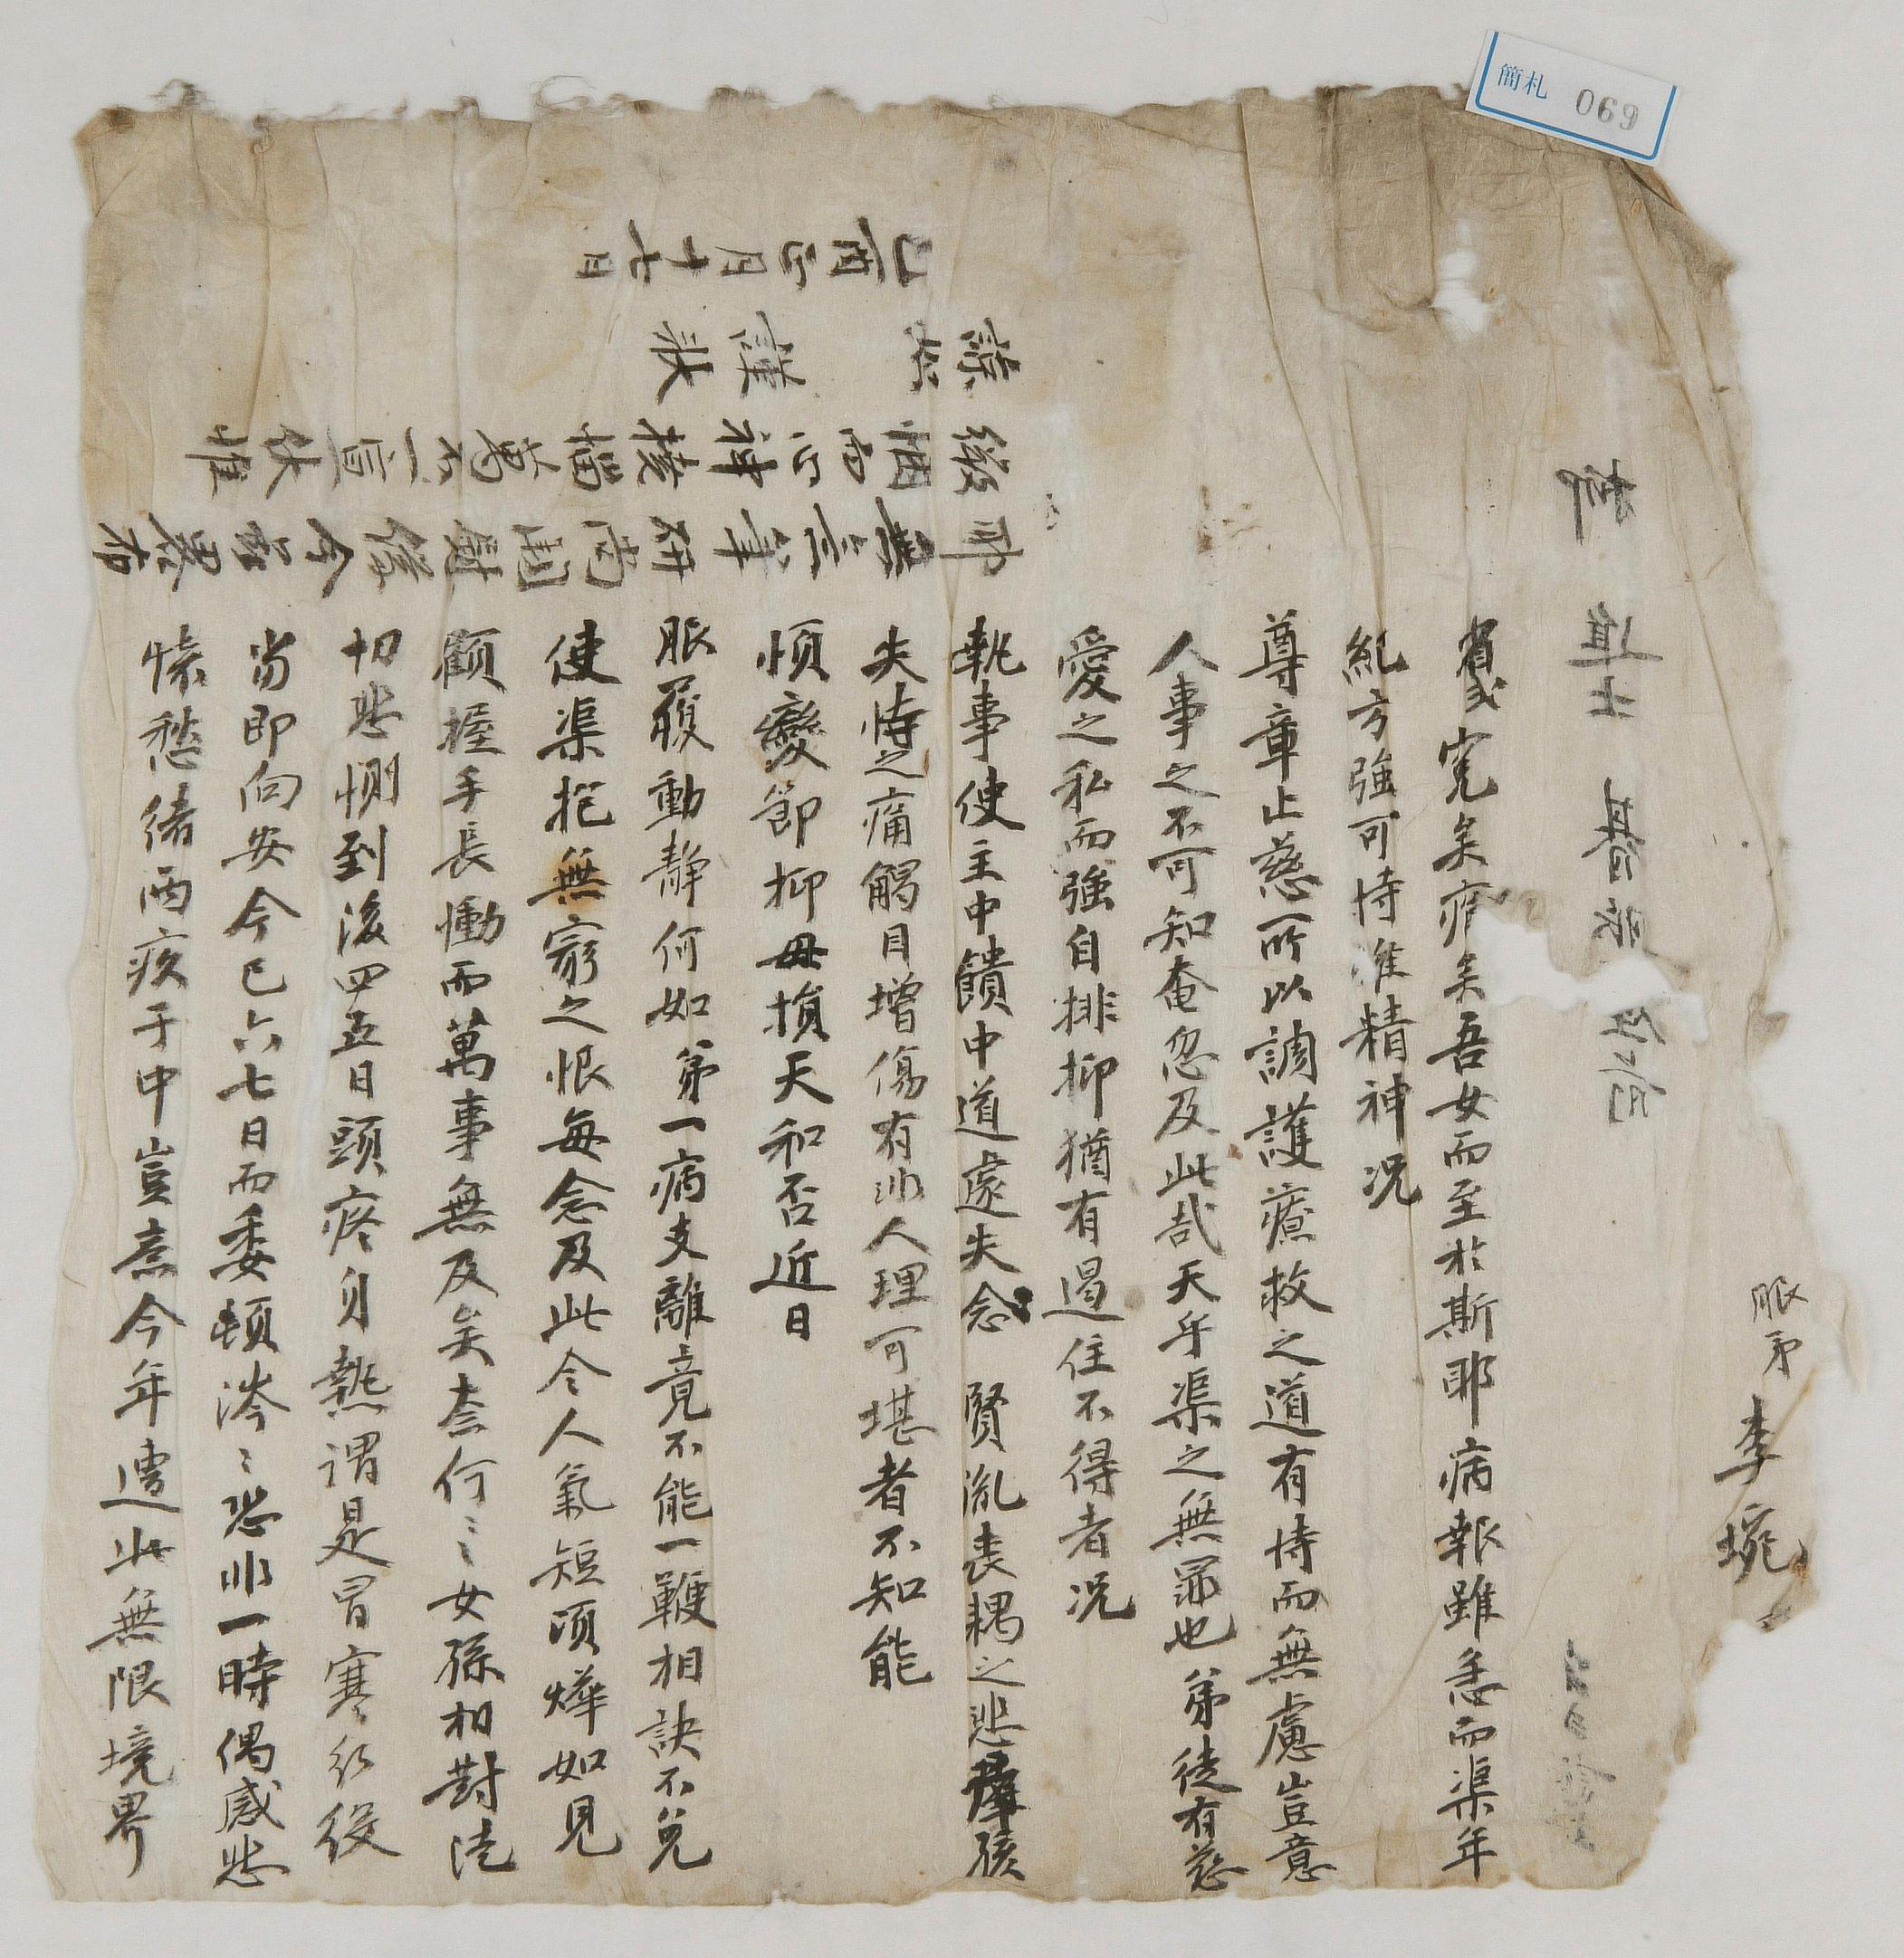 簡札 069
省式寃矣痛矣吾女而至於斯耶病報雖急而渠年
紀方強可恃准精神况
尊章止慈所以調護療救之道有恃而無慮豈意
人事之不可知奄忽及此哉天乎渠之無罪也弟徒有慈
愛之私而強自排抑猶有遏住不得者况
執事使主中饋中道遽失念 賢胤喪耦之悲 孩
失恃之痛觸目增傷有非人理可堪者不知能
順變節抑毋損天和否近日
服履動靜何如弟一病支離竟不能一鞭相訣不免
使渠抱無窮之恨每念及此令人氣短項燁如見
顧握手長慟而萬事無及矣奈何〻女孫相對徒
切悲惻到後四五日頭疼身熱謂是冒寒行役
當即向安今已六七日而委頓涔〻恐非一時偶感悲
悰愁緖兩疚于中豈意今年遭此無限境界
耶無意筆研 便 今 略布
緻悃而心神摧惱萬不一宣伏惟
諒下 謹狀
乙酉正月十七日
服弟 李埦
柳進士 朞服